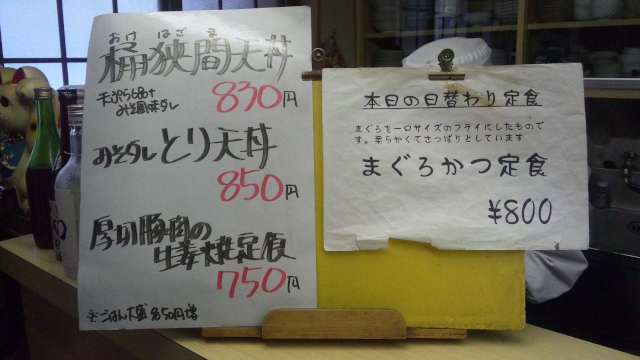 おけ はざ ま
桶狭間天丼
天ぷら6品+
みそ風味タレ
830円
みそダレとり天丼
850円
厚切豚肉の
生姜焼定食
750円
ごはん大盛
50円増
本日の日替わり定食
まぐろを一口サイズのフライにしたもので
す。柔らかくてさっぱりとしています
まぐろかつ定食
¥800